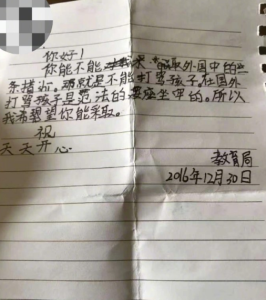 你好！
你能不能采取外国中的一
条措施。那就是不能打骂孩子。在国外
打骂孩子是犯法的要坐牢的。所以
我希望你能采取。
祝
天天开心
教育局
2016年12月30日